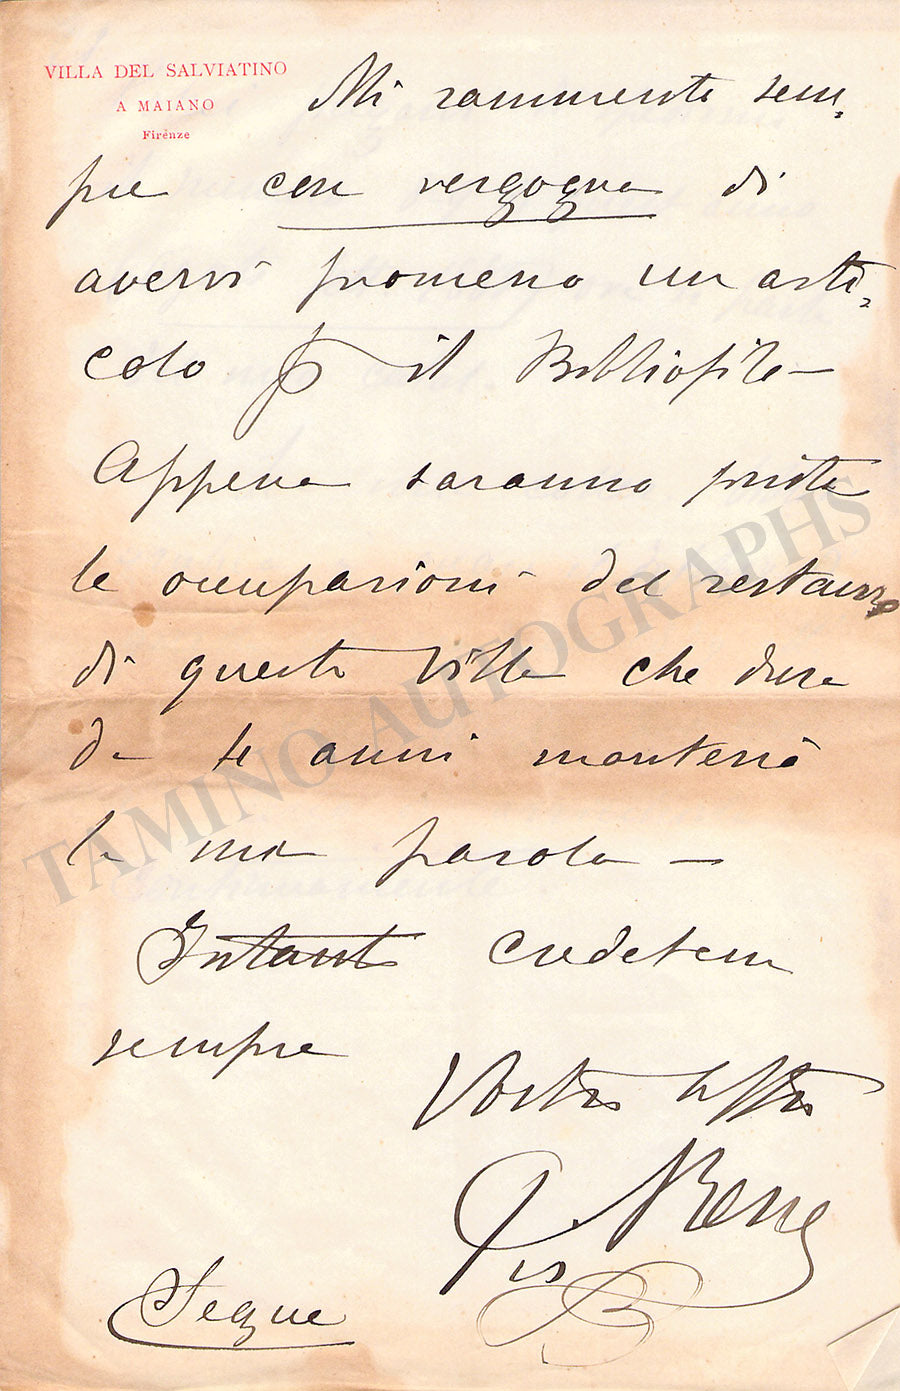 VILLA DEL SALVIATINO
A MAIANO
Firenze
Mi rammento sem-
pre con vergogna di
avervi promesso un arti-
colo il Bibliofilo —
Appena saranno finite
le occupazioni del restauro
di questa Villa che dura
da anni manterrò
la mia parola —
Intanto credetemi
sempre
Vostro
Segue
TAMINO AUTOGRAPHS